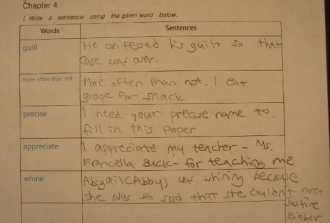 Chapter 4
I. Write a sentence using the given word below.
Words Sentences
guilt He confessed his guilt so that
case was over.
more often than not More often than not, I eat
grape for snack
precise I need your precise name to
fill in this paper
appreciate I appreciate my teacher - Ms.
Francella Buck - for teaching me
whine Abigail (Abby) was whining because
she was so sad that she couldn't meet
Justine
Bieber